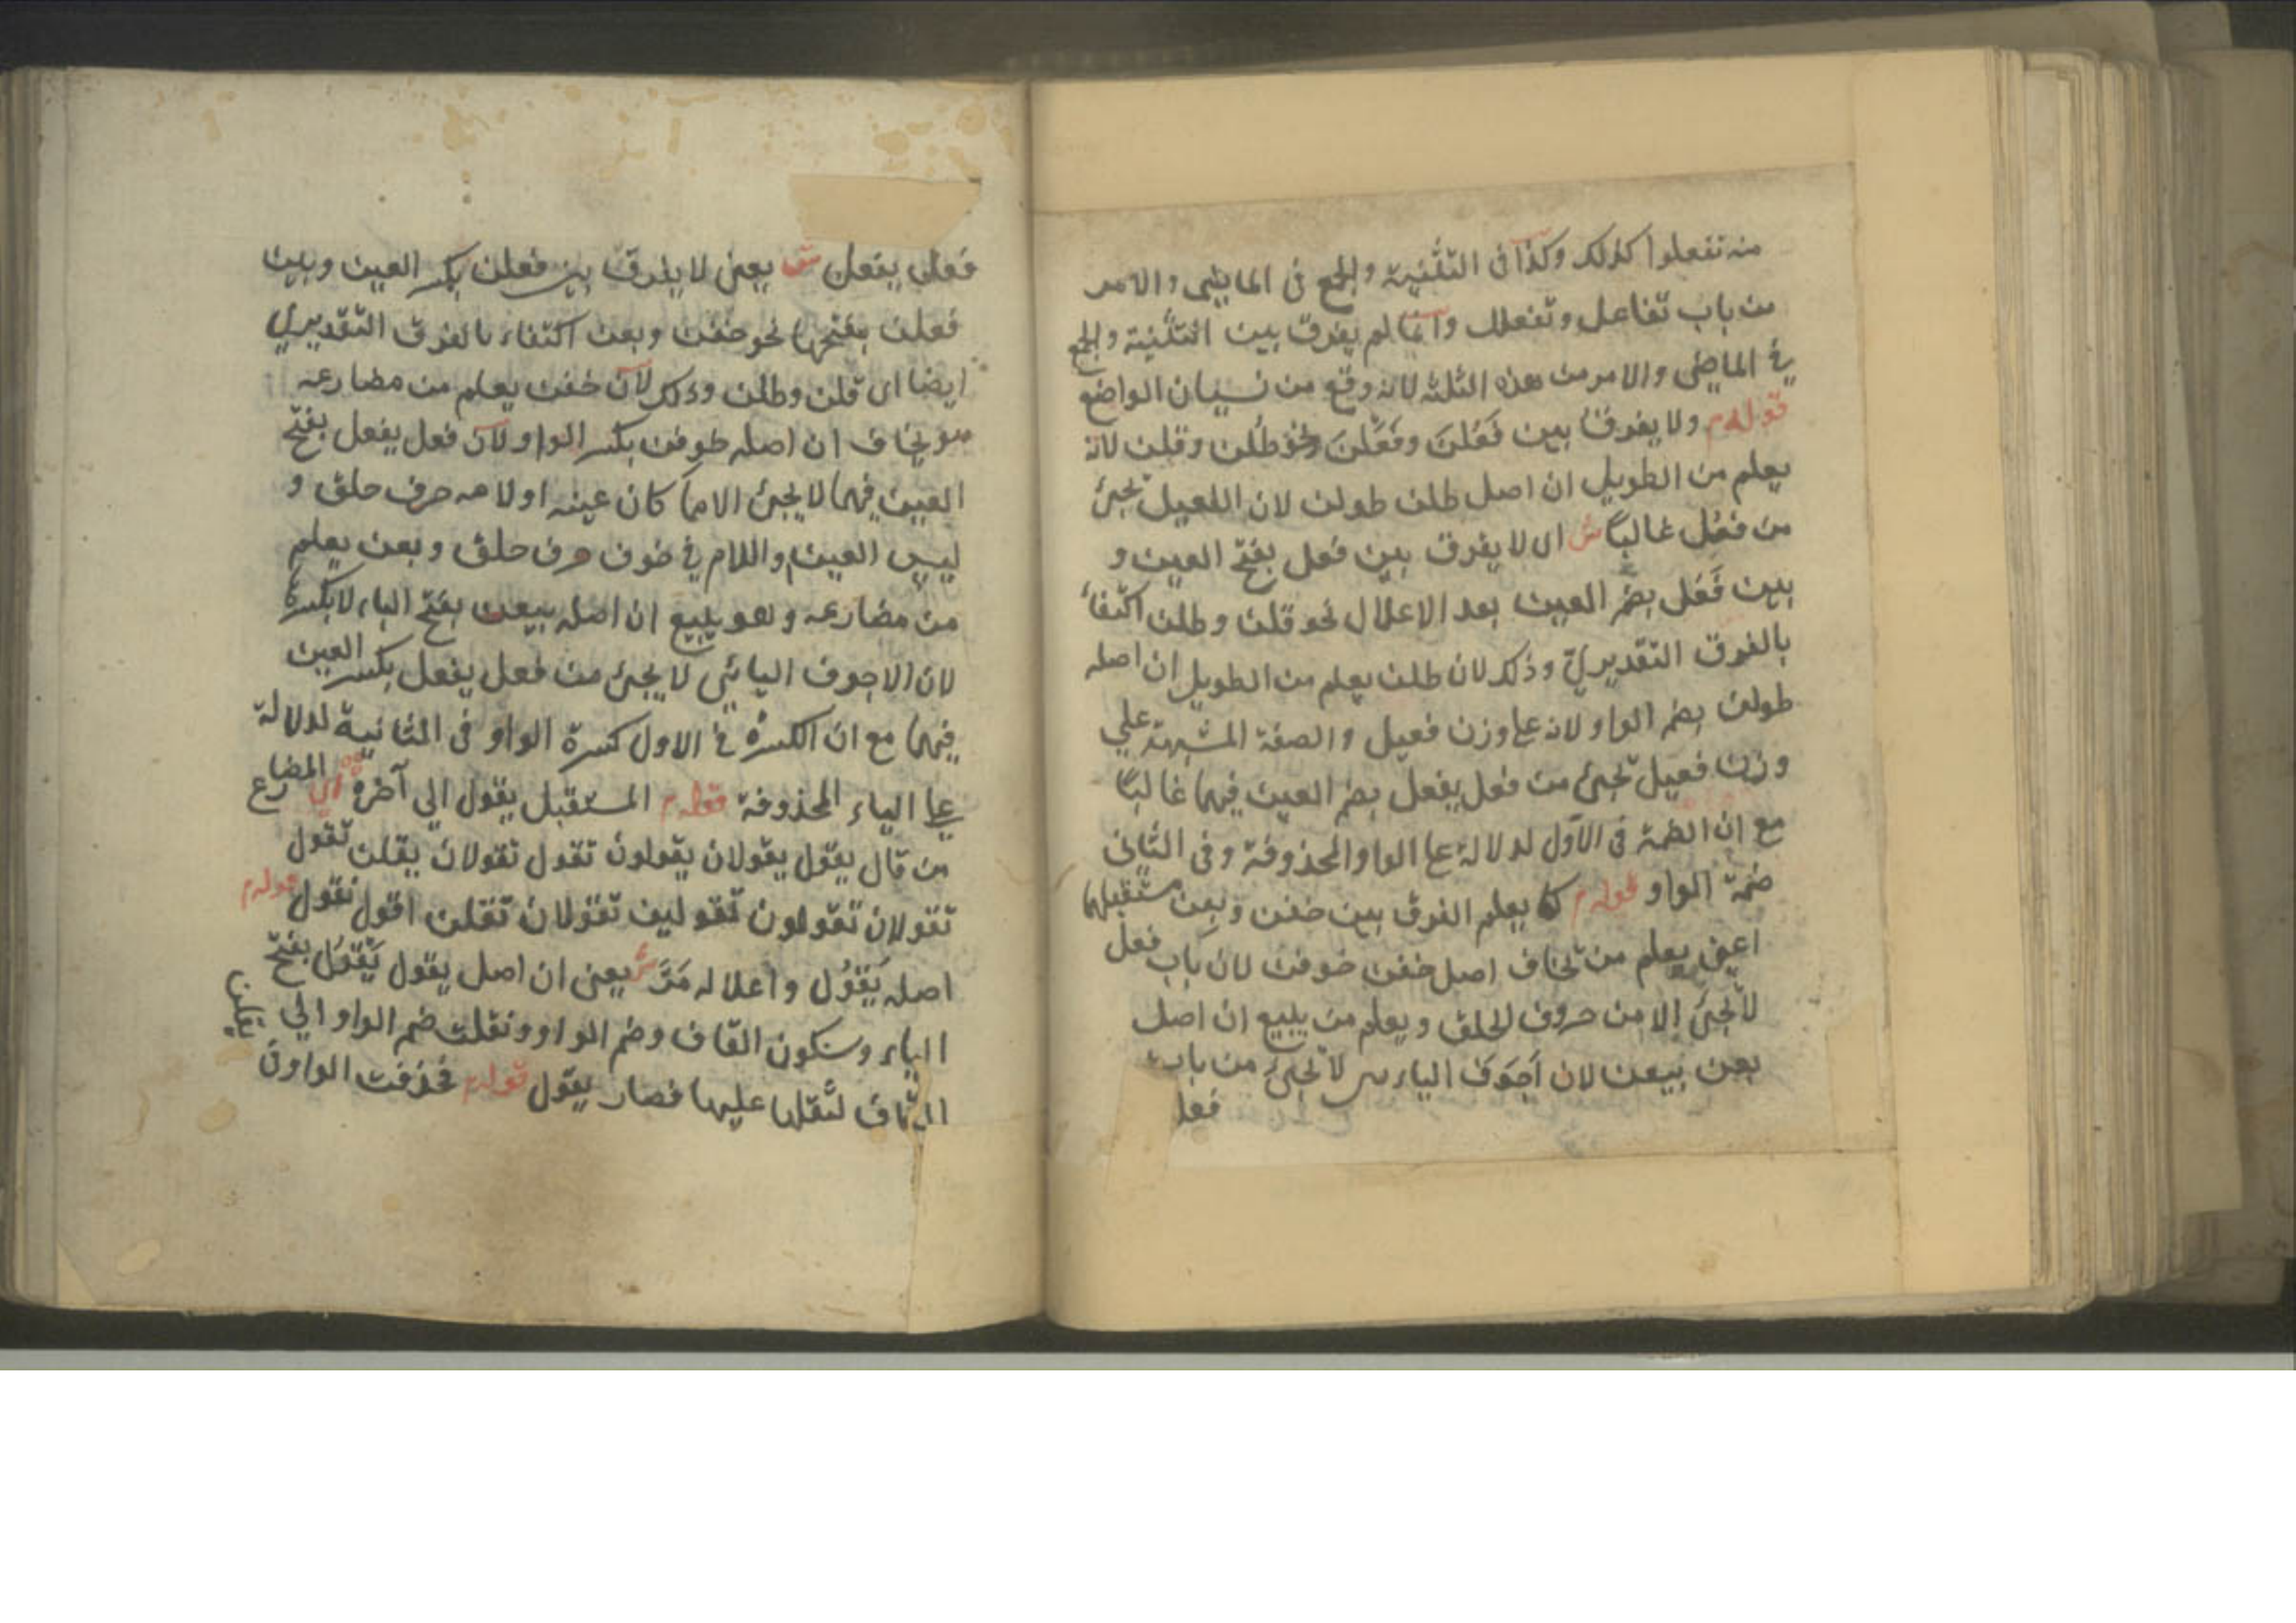 منه تفعلوا كذلك وكذا فى التثنية والجمع فى الماضى والامر
من باب تفاعل وتفعلل وانما لم يفرق بين التثنية والجمع
فى الماضى والامر من هذه الثلثة لانه وقع من نسيان الواضع
قوله م ولا يفرق بين فَعُلنَ وفَعَلنَ نحو طلن وقلن لانه
يعلم من الطويل ان اصل طلن طولن لان الفعيل يجئ
من فعُل غالبًا ش اى لا يفرق بين فعل بفتح العين و
بين فَعُل بضم العين بعد الاعلال نحو قلن وطلن اكتفاء
بالفرق التقديرى وذلك لان طلن يعلم من الطويل ان اصله
طولن بضم الواو لانه على وزن فعيل والصفة المشبهة على
وزن فعيل تجئ من فعل يفعل بضم العين فيهما غالبًا
مع ان الضمة فى الاول لدلالة على الواو المحذوفة وفى الثانى
ضمة الواو قوله م كما يعلم الفرق بين خفن وبعن مستقبلهما
اعنى يعلم من يخاف اصل خفن خوفن لان باب فعل
لا يجئ الا من حروف الحلق ويعلم من يبيع ان اصل
بعن بيعن لان اجوف الياء لا يجئ من باب
فعل
فعل يفعل ش يعنى لا يفرق بين فعلن بكسر العين وبين
فعلن بفتحها نحو خفن وبعن اكتفاء بالفرق التقديرى
ايضا اى قلن وطلن وذلك لان خفن يعلم من مضارعه
هو يخاف ان اصله خوفن بكسر الواو ولان فعل يفعل بفتح
العين فيهما لا يجئ الا مما كان عينه او لامه حرف حلق و
ليس العين واللام فى خوف حرف حلق وبعن يعلم
من مضارعه وهو يبيع ان اصله بيعن بفتح الياء لا بكسرة
لان الاجوف اليائى لا يجئ من فعل يفعل بكسر العين
فيهما مع ان الكسرة فى الاول كسرة الواو فى الثانية لدلالة
على الياء المحذوفة قوله م المستقبل يقول الى آخره اى المضارع
من قال يقول يقولان يقولون تقول تقولان يقلن تقول
تقولان تقولون تقولين تقولان تقلن اقول نقول قوله م
اصله يَقْوُل واعلاله مَرَّ ش يعنى ان اصل يقول يَقْوُل بفتح
الياء وسكون القاف وضم الواو ونقلت ضم الواو الى
القاف لثقلها عليها فصار يقول قوله م فحذفت الواو فى
يقلن